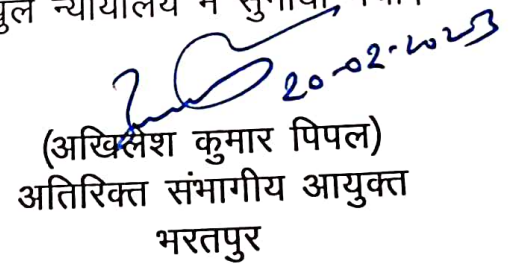 न्यायालय में
20-02-2023
(अखिलेश कुमार पिपल)
अतिरिक्त संभागीय आयुक्त
भरतपुर